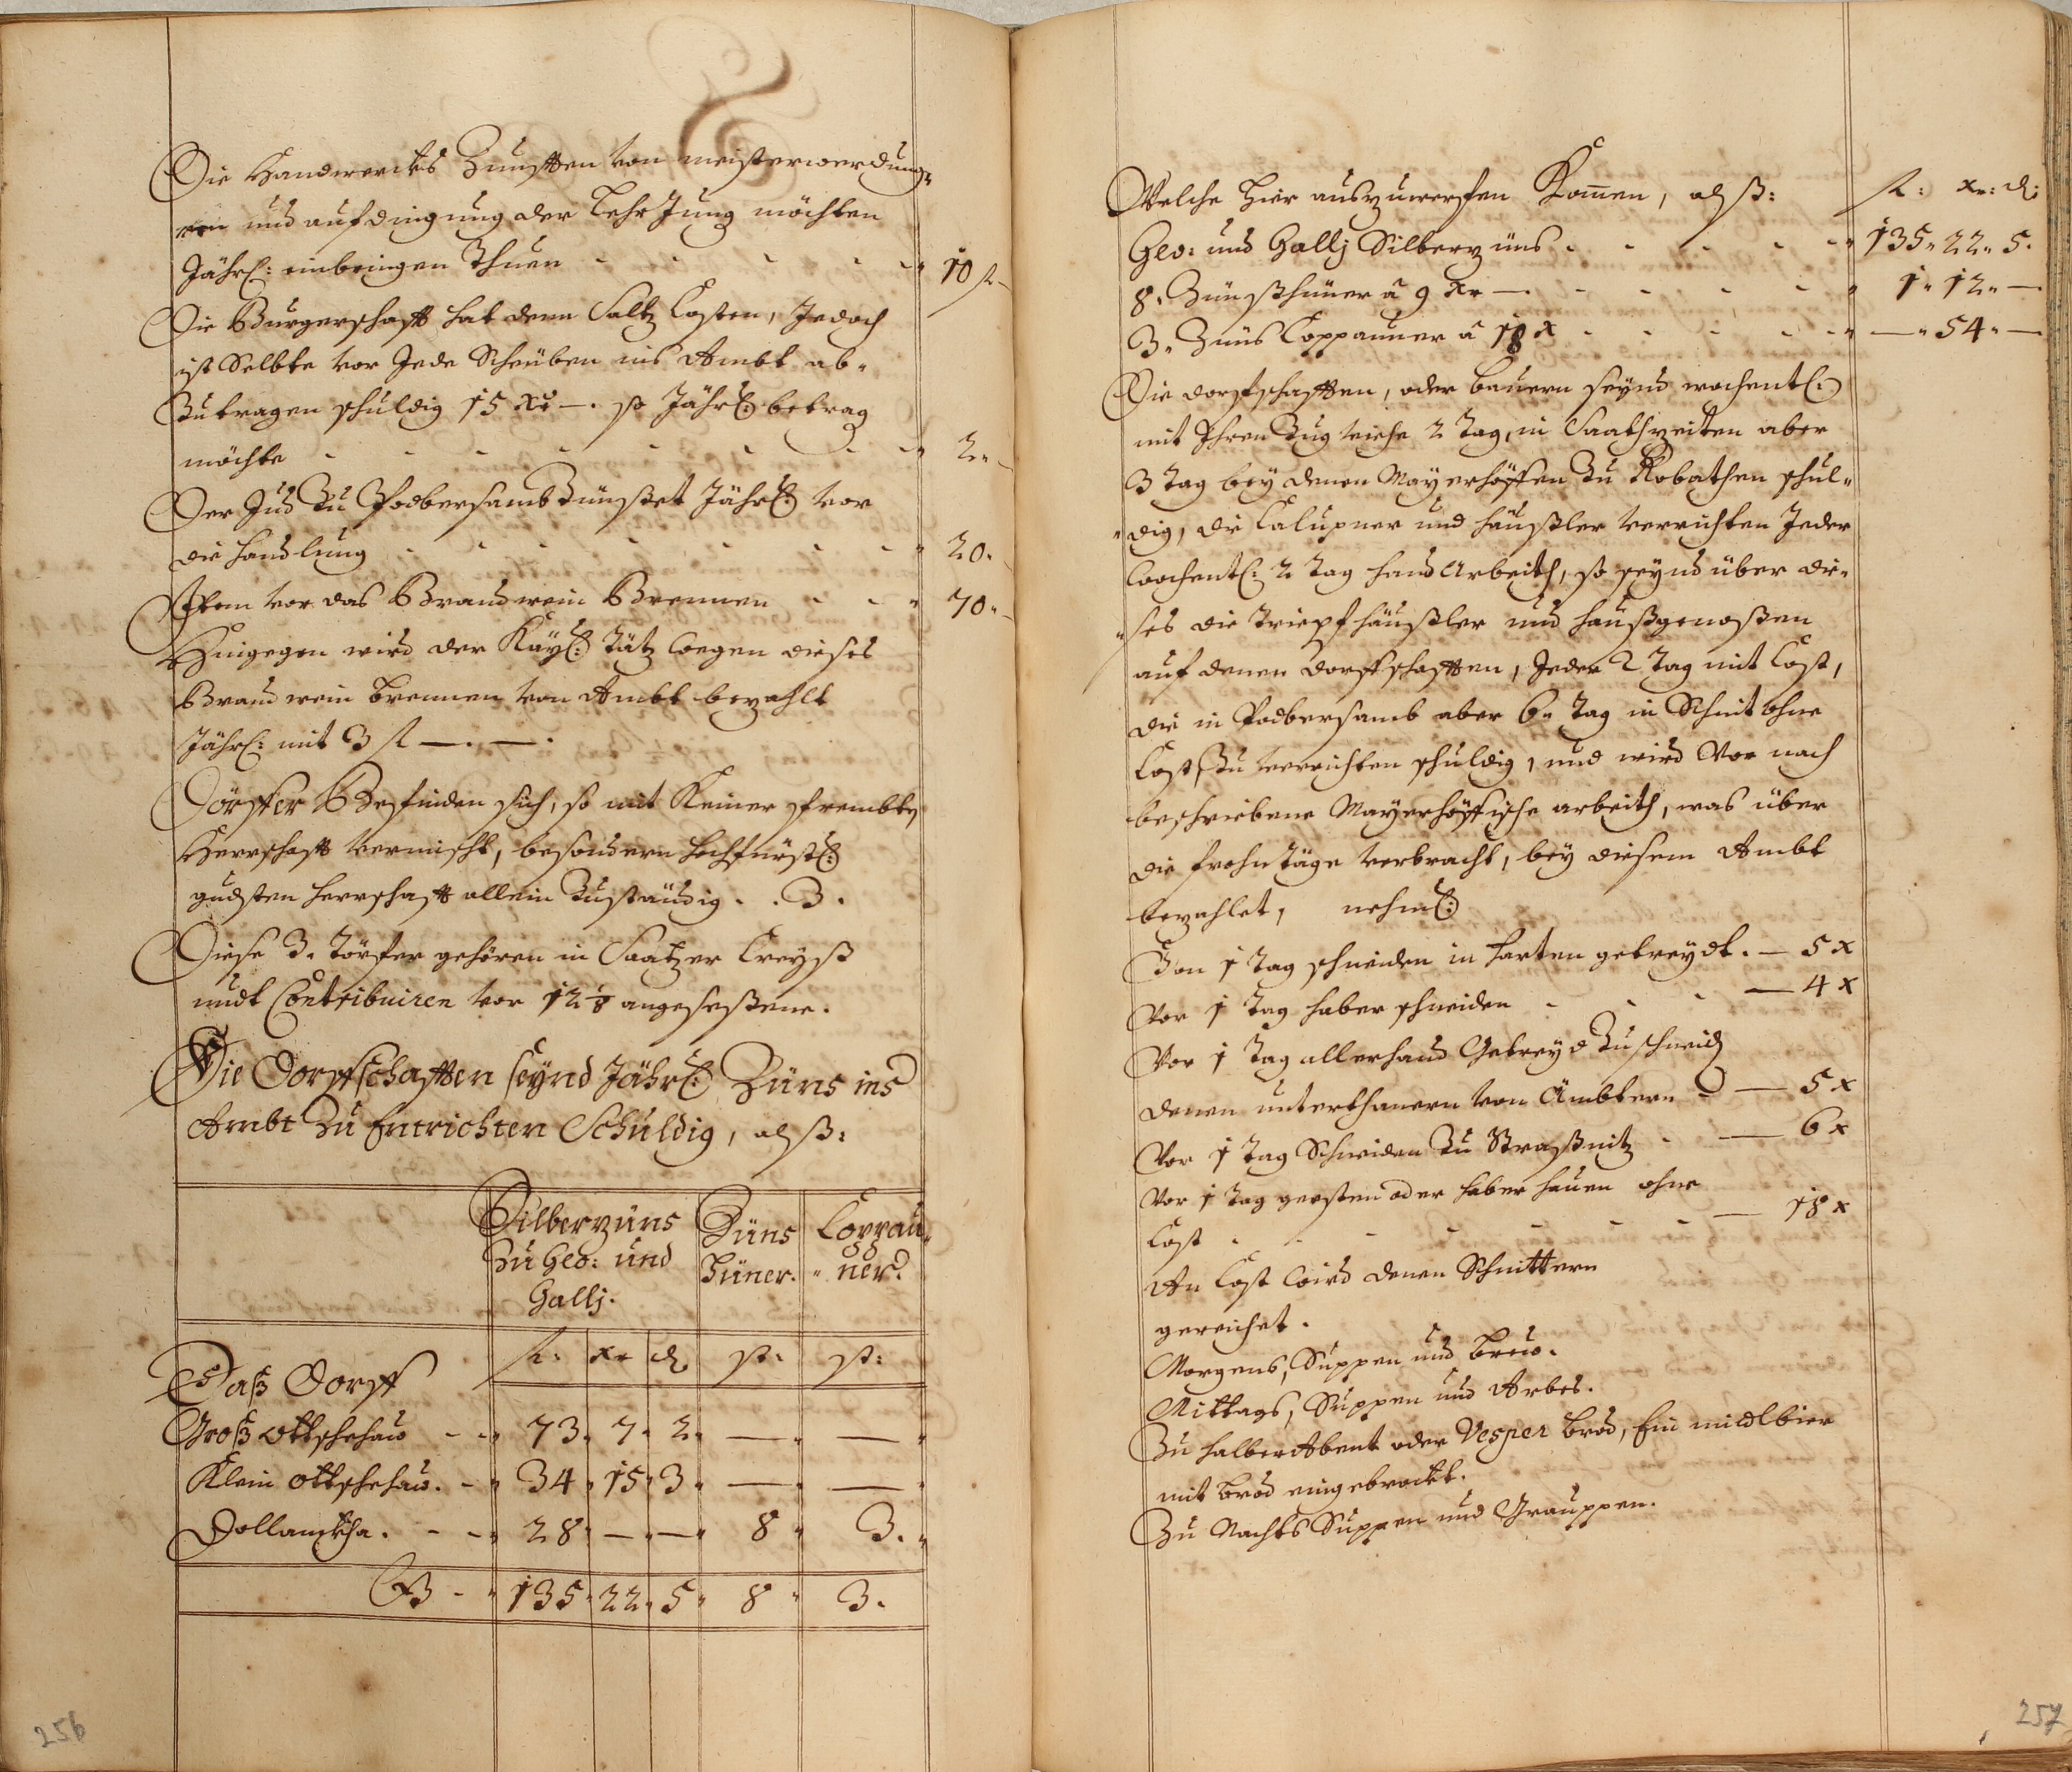 Die Handwercks Zunfften von meisterwerdung-
en und aufdingung der Lehr Jung möchten
Jährl: einbringen Thuen - - - - - " 10 fl -
Die Burgerschafft hat denn Saltz Casten, Jedoch
ist Selbte vor Jede Scheüben ins Ambt ab-
Zutragen schuldig 15 xr —. so Jährl: betrag
möchte - - - - - - - " 2 " -
Der Jud Zu Podbersamb Zünßet Jährl: vor
die handlung - - - - - - " 20 "
Item vor das Brandwein Brennen - - " 70 " -
Hingegen wird der Kayl: Tätz wegen dieses
Brandwein brennen von Ambt bezahlt
Jährl: mit 3 fl —.—.
Dörffer Befinden sich, so mit Keiner frembten
Herrschafft vermischt, besondern hochfürstl:
gndsten herrschafft allein Zuständig . . 3.
Diese 3. Törfer gehören in Saatzer Creyß
undt Contribuiren vor 12 1/8 angeseßene.
Die Dorffschafften seynd Jährl: Züns ins
Ambt Zu Entrichten Schuldig, alß:
Silberzüns Züns Coppau-
Zu Geo: und Hüner. " ner.
Gallj.
fl: xr d. st: st:
Daß Dorff
Groß Ottschehau - - " 73 " 7 " 2 " — " — "
Klein Ottschehau. - " 34 " 15 " 3 " — " — "
Dollantkha. - - " 28 " — " — " 8 " 3. "
- " 135 " 22 " 5 " 8 " 3.
256
Welche hier auszuwerfen Kom̄en, alß: fl: xr: d:
Geo: und Gallj Silberzüns - - - - - " 135 " 22 " 5.
8. Zünßhüner â 9 xr —. - - - - " 1 " 12 " —
3. Züns Coppauner â 18 x - - - - - " — " 54 " —
Die dorfschafften, oder bauern seynd wochentl:
mit Ihren Zug viehe 2 Tag, in Saathzeiten aber
3 Tag bey denen Mayerhöffen Zu Robathen schul-
"dig, die Calupner und häußler verrichten Jeder
wochentl: 2 Tag hand Arbeith, so seynd über die-
"ses die Triepfhäußler und haußgenoßen
auf denen dorffschafften, Jeder 2 Tag mit Cost,
die in Podbersamb aber 6. Tag in Schnit ohne
Cost Zu verrichten schuldig, und wird Vor nach
beschriebene Mayerhöffische arbeith, was über
die frohn Täge verbracht, bey diesem Ambt
bezahlet, nehml:
Von 1 Tag schneiden in harten getreydt. — 5 x
Vor 1 Tag haber schneiden - - - — 4 x
Vor 1 Tag allerhand Getreyd Zu schneiden
denen unterthanern von Ämbtern - — 5 x
Vor 1 Tag Schneiden Zu Straßnitz - — 6 x
Vor 1 Tag gersten oder haber hauen ohne
Cost - - - - - — 18 x
An Cost wird denen Schnittern
gereichet.
Morgens, Suppen und breü.
Mittags, Suppen und Arbes.
Zu halber Abent oder Vesper brod, Ein
mit brod eingebrockt.
Zu Nachts Suppen und Grauppen.
257